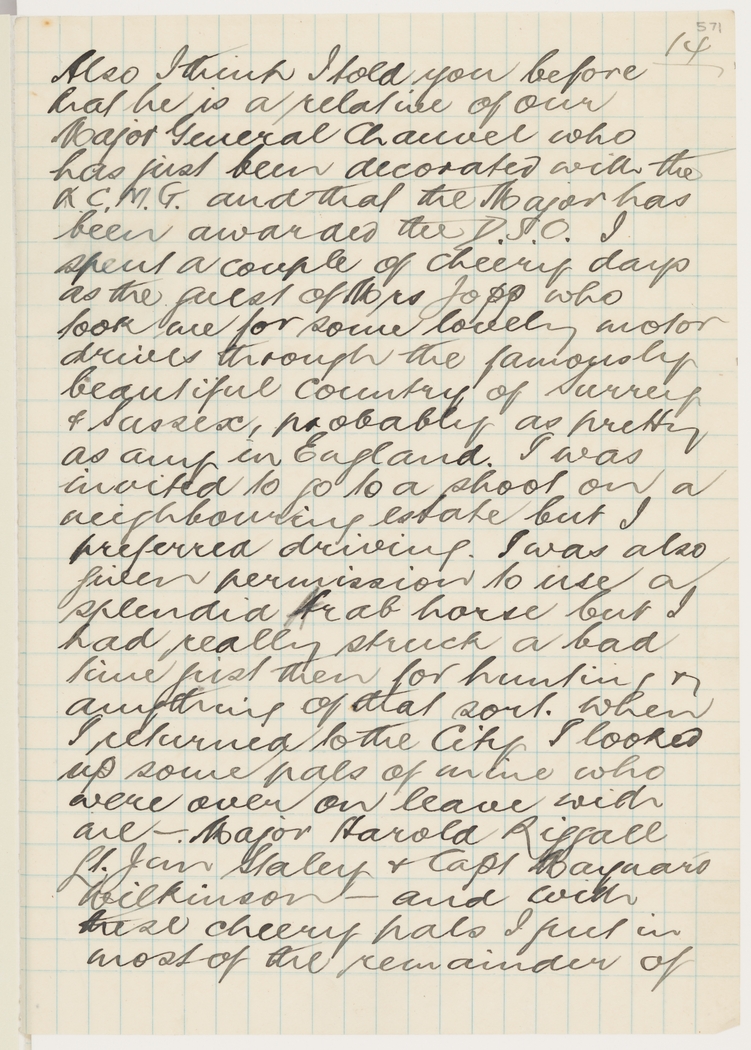 571
14
Also I think I told you before
that he is a relative of our
Major General Chauvel who
has just been decorated with the
K.C.M.G. and that the Major has
been awarded the D.S.O. I
spent a couple of cheery days
as the guest of Mrs Jopp who
took me for some lovely motor
drives through the famously
beautiful country of Surrey
& Sussex, probably as pretty
as any in England. I was
invited to go to a shoot on a
neighbouring estate but I
preferred driving. I was also
given permission to use a
splendid Arab horse but I
had really struck a bad
time just then for hunting or
anything of that sort. When
I returned to the City I looked
up some pals of mine who
were over on leave with
me – Major Harold Riggall
Lt. Jim Staley & Capt Maynard
Wilkinson – and with
these cheery pals I put in
most of the remainder of